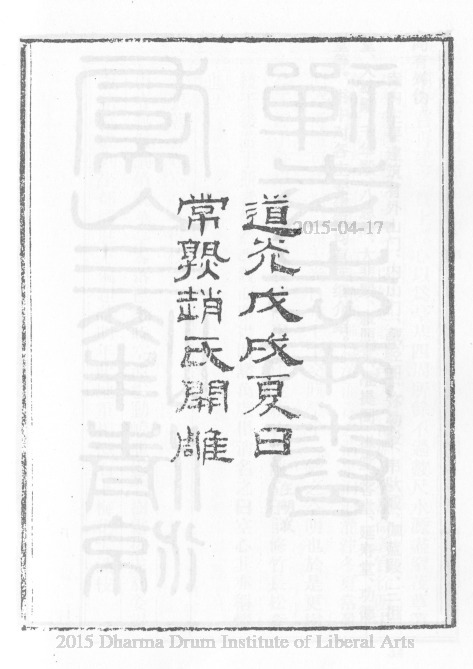 道光戊戌夏日
常熟趙氏開雕
2015-04-17
2015 Dharma Drum Institute of Liberal Arts